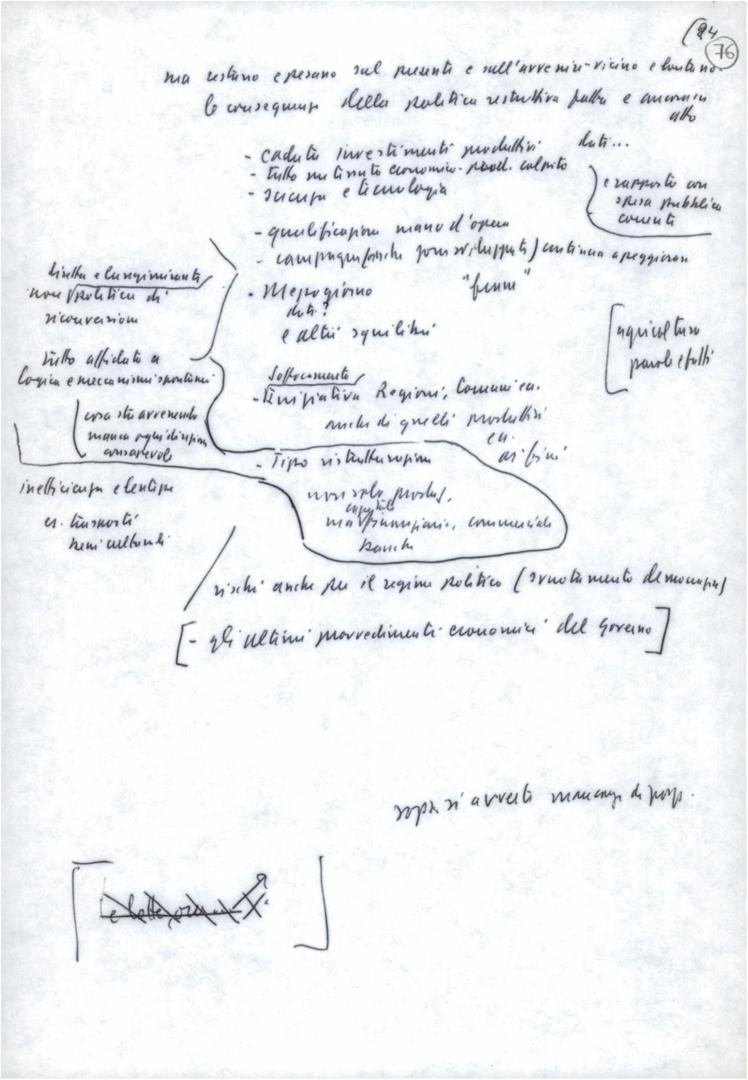 24
76
ma restano e pesano sul presente e sull'avvenire-vicino e lontano
le conseguenze della politica restrittiva fatta e ancora in
atto
dati...
- caduta investimenti produttivi
- tutto un tessuto economico-prod. colpito
- scienza e tecnologia
e rapporto con
spesa pubblica
corrente
- qualificazione mano d'opera
- campagne (anche zone sviluppate) continua a peggiorare
- Mezzogiorno
dati?
"fiumi"
e altri squilibri
agricoltura
parole e fatti
scelta e lungimirante
non politica di
riconversione
tutto affidato a
logica e meccanismi spontanei
cosa sta avvenendo
manca ogni direzione
consapevole
Soffocamento
- iniziativa Regioni, Comuni ecc.
anche di quelli produttivi
ecc.
ai fini
- Tipo ristrutturazione
non solo produz.
capitale
ma finanziario, commerciale
banche
inefficienza e lentezze
es. trasporti
beni culturali
rischi anche per il regime politico (svuotamento democrazia)
[- gli ultimi provvedimenti economici del Governo]
sopra si avverte mancanza di